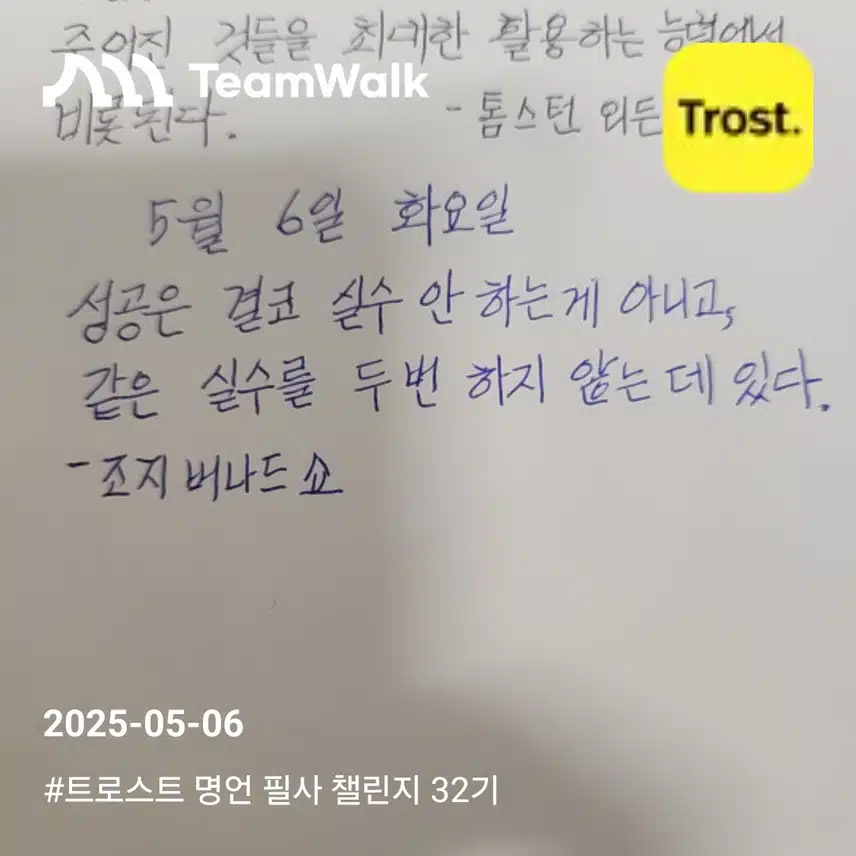 주어진 것들을 최대한 활용하는 능력에서
TeamWalk
비롯된다. - 톰스턴 외든
Trost.
5월 6일 화요일
성공은 결코 실수 안 하는게 아니고,
같은 실수를 두번 하지 않는데 있다.
- 조지 버나드 쇼
2025-05-06
#트로스트 명언 필사 챌린지 32기